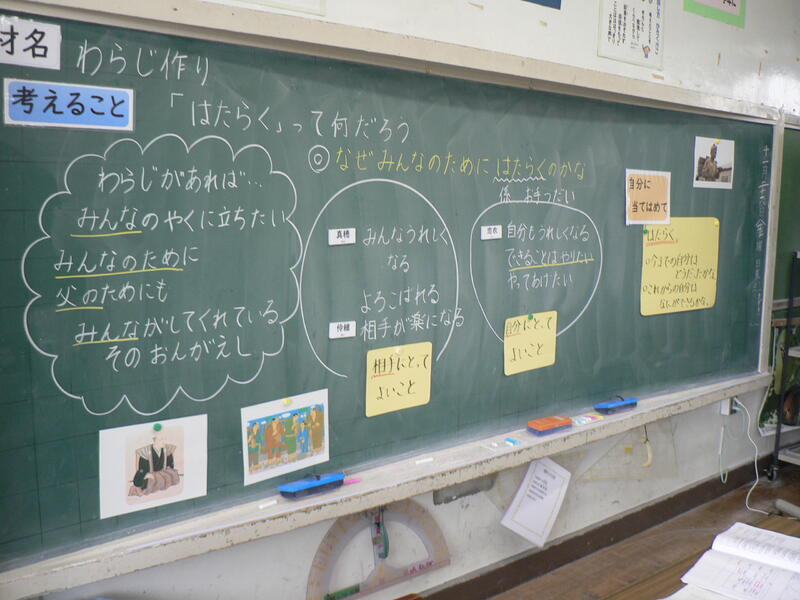 材名
わらじ作り
考えること
「はたらく」って何だろう
◎なぜみんなのために はたらくのかな
係 お手つだい
わらじがあれば…
みんなのやくに立ちたい
みんなのために
父のためにも
みんながしてくれている
そのおんがえし
みんなうれしく
なる
よろこばれる
相手が楽になる
相手にとって
よいこと
自分もうれしくなる
できることはやりたい
やってあげたい
自分にとって
よいこと
自分に
当てはめて
はたらく。
○今までの自分は
どうだったかな
○これからの自分は
なにができるかな。